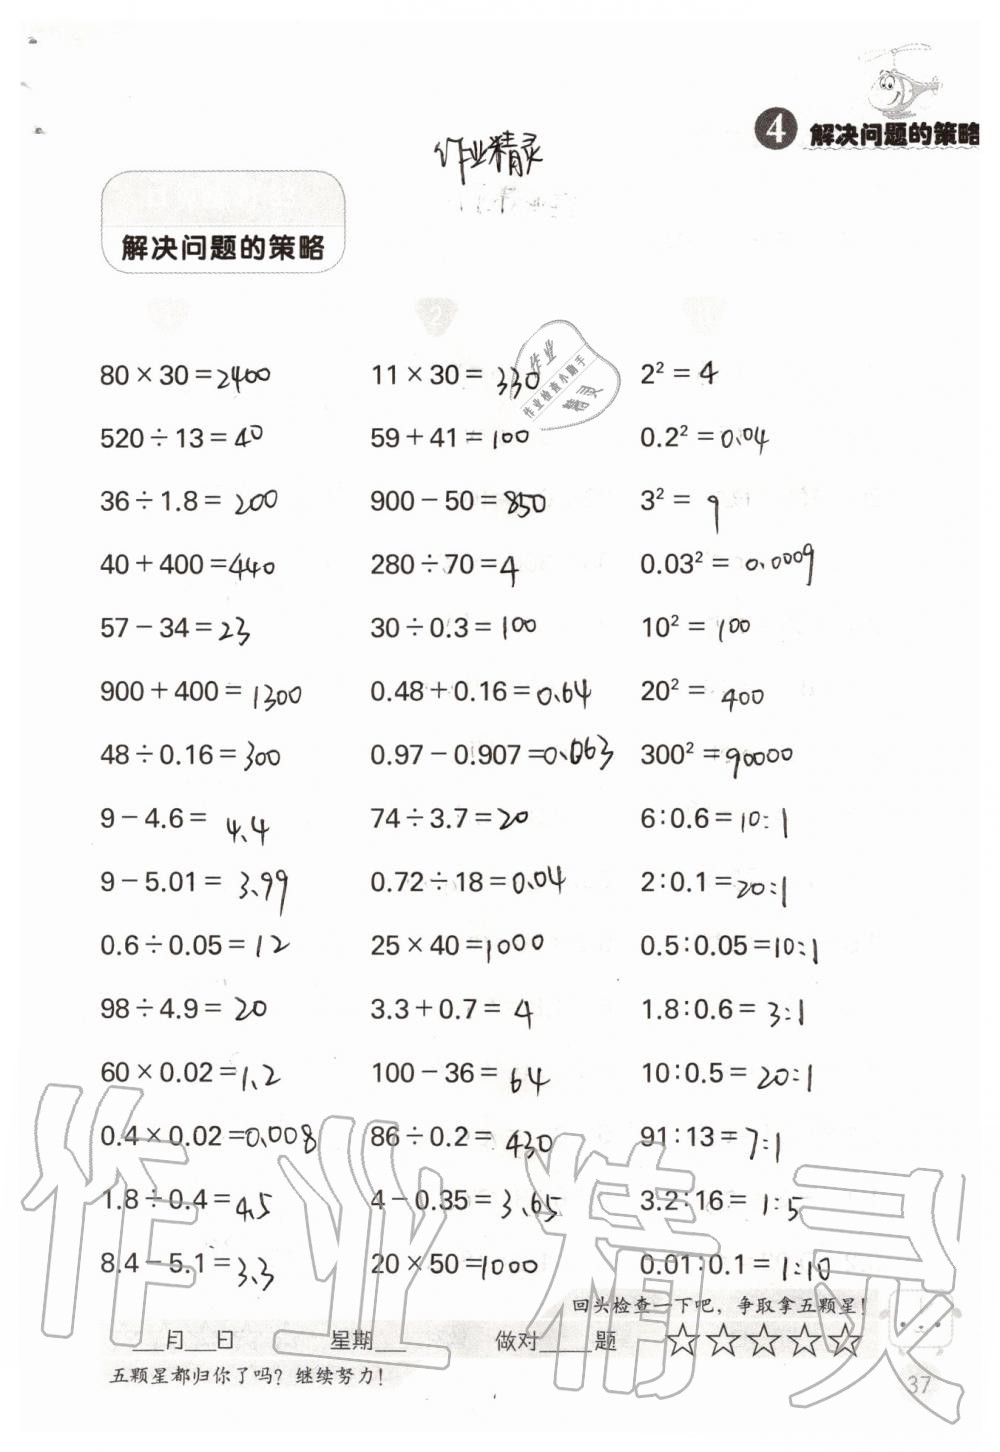 4 解决问题的策略
作业精灵
解决问题的策略
2
作业
作业检查小助手
精灵
80×30=2400 11×30=330 2²=4
520÷13=40 59+41=100 0.2²=0.04
36÷1.8=200 900-50=850 3²=9
40+400=440 280÷70=4 0.03²=0.0009
57-34=23 30÷0.3=100 10²=100
900+400=1300 0.48+0.16=0.64 20²=400
48÷0.16=300 0.97-0.907=0.063 300²=90000
9-4.6=4.4 74÷3.7=20 6:0.6=10:1
9-5.01=3.99 0.72÷18=0.04 2:0.1=20:1
0.6÷0.05=12 25×40=1000 0.5:0.05=10:1
98÷4.9=20 3.3+0.7=4 1.8:0.6=3:1
60×0.02=1.2 100-36=64 10:0.5=20:1
0.4×0.02=0.008 86÷0.2=430 91:13=7:1
1.8÷0.4=4.5 4-0.35=3.65 3.2:16=1:5
8.4-5.1=3.3 20×50=1000 0.01:0.1=1:10
作业精灵
回头检查一下吧，争取拿五颗星!
___月___日 星期___ 做对____题 ☆☆☆☆☆
五颗星都归你了吗? 继续努力!
37